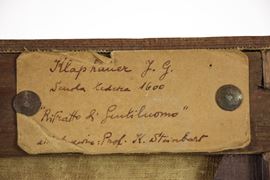 Klaphauer J. G.
Scuola tedesca 1600
"Ritratto di Gentiluomo"
attribuzione: Prof. K. Steinbart